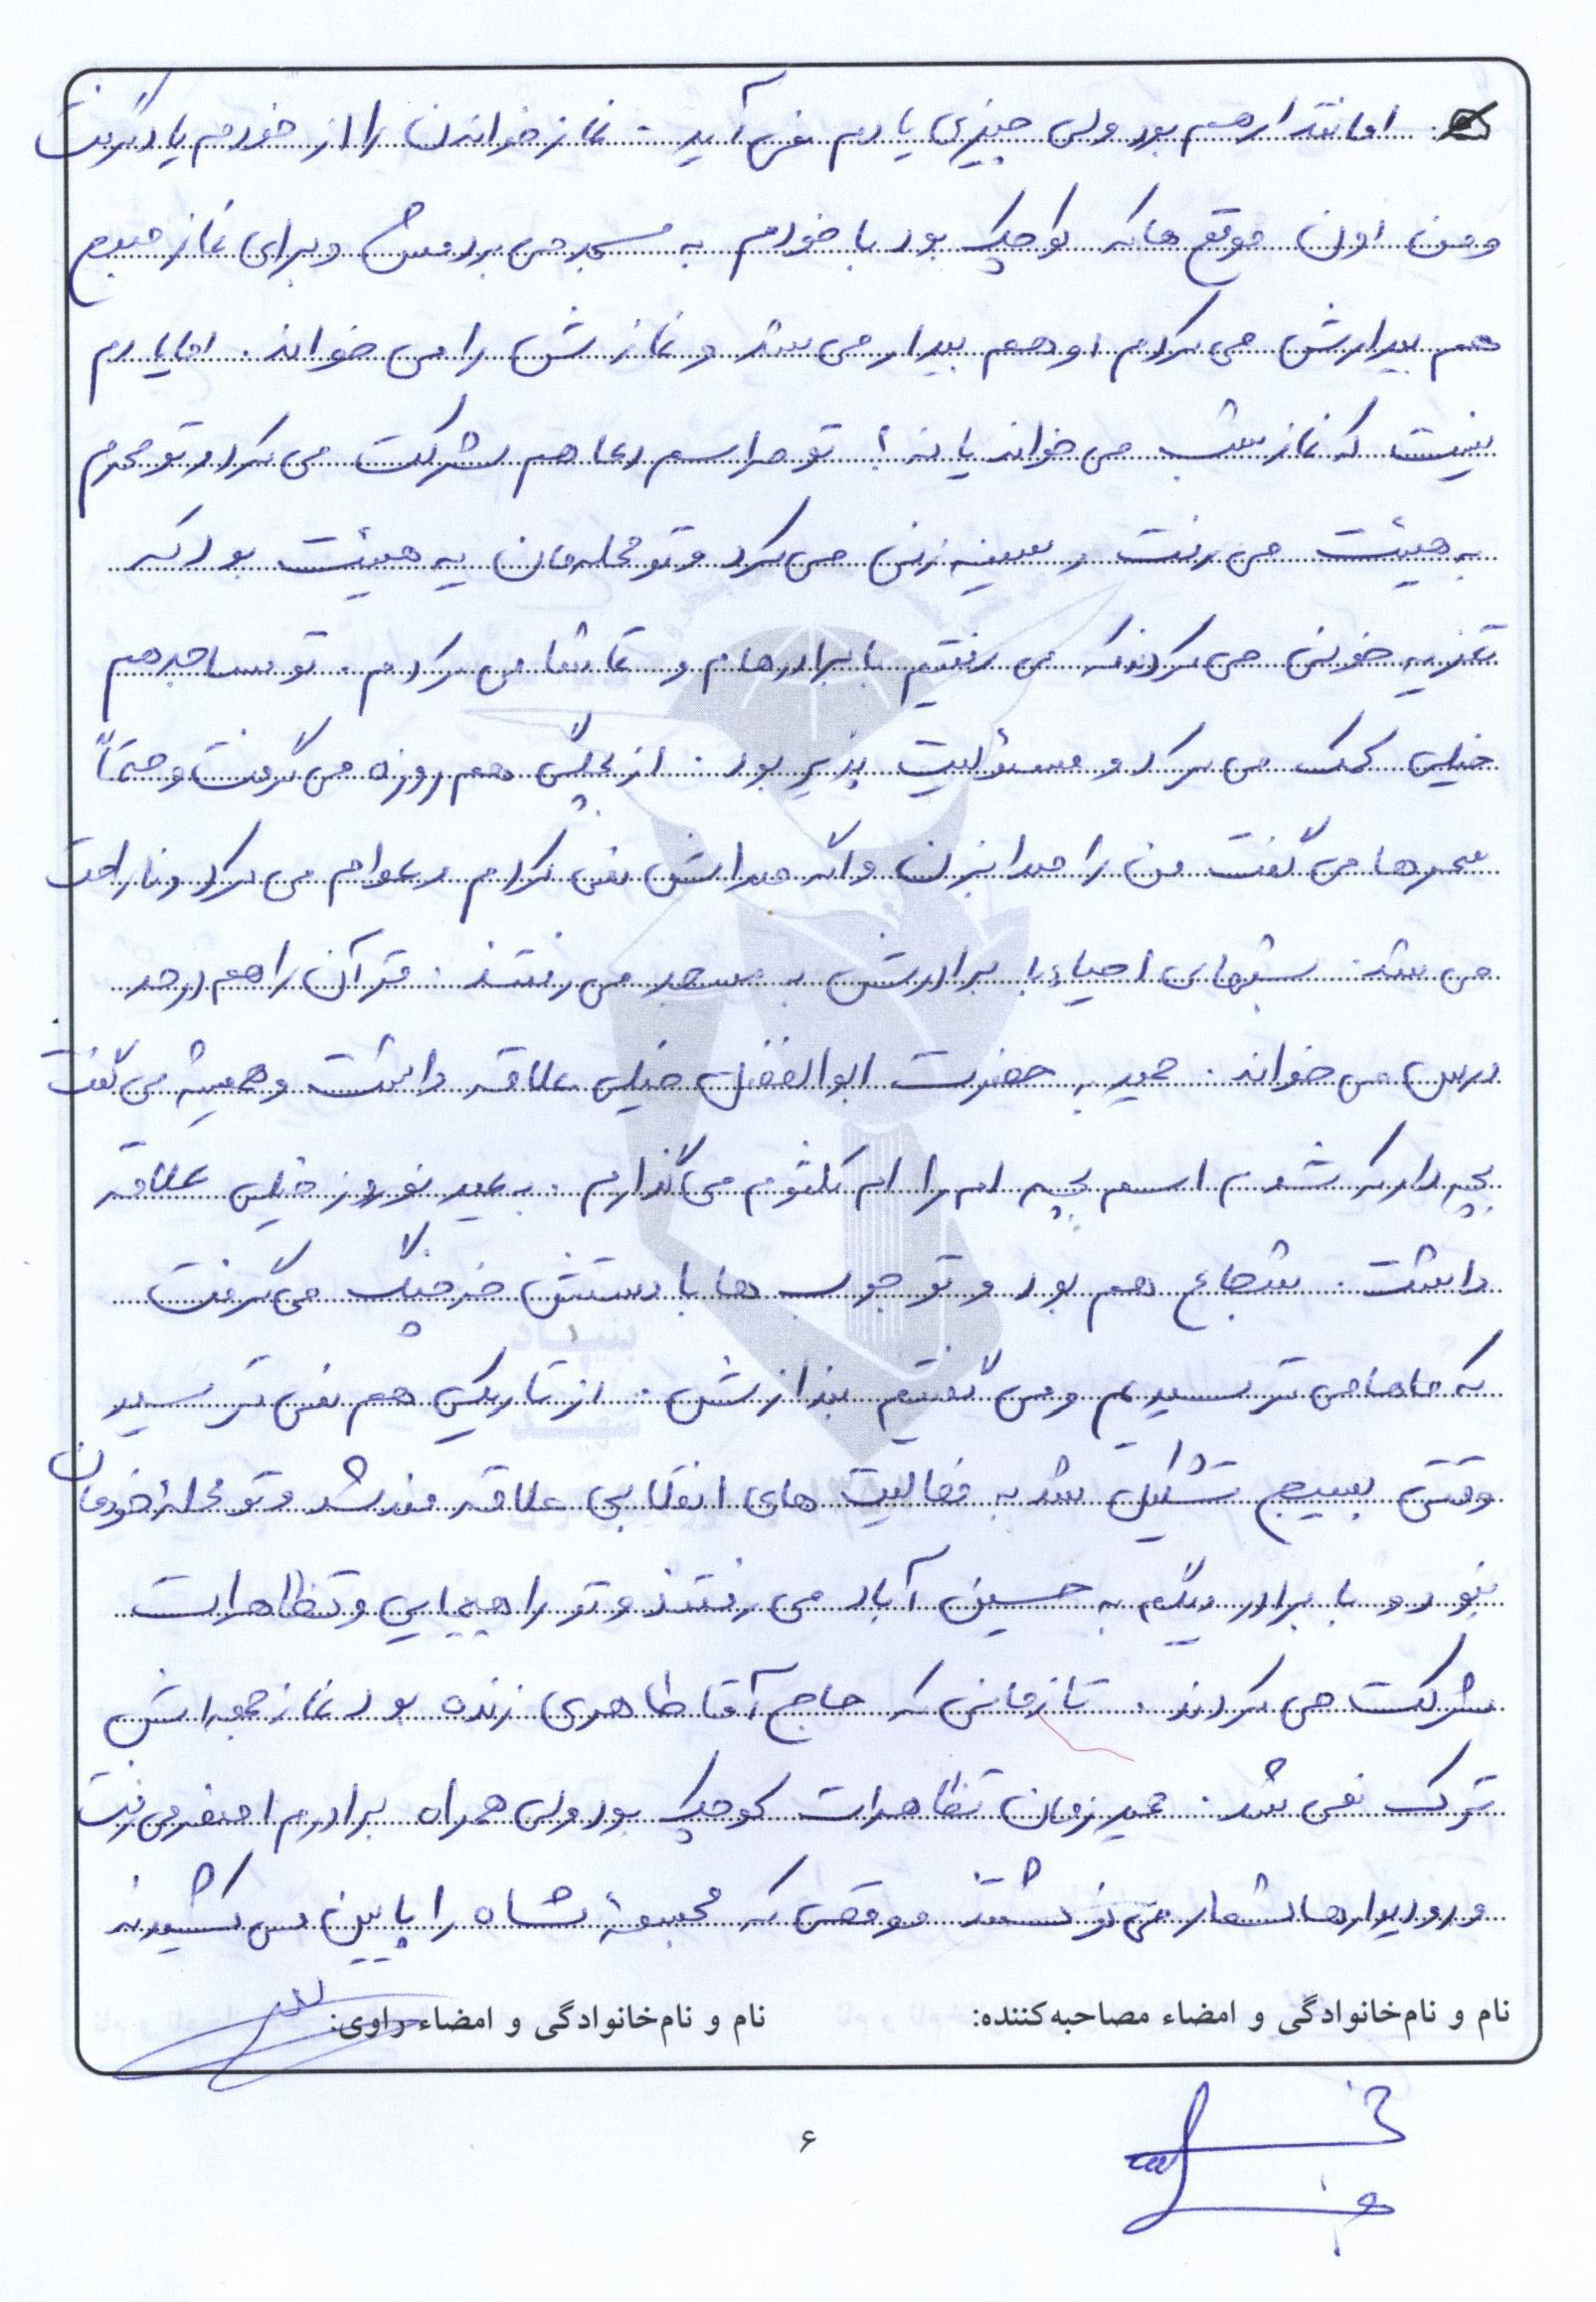 امانتدار هم بود ولی چیزی یادم نمی آید. نماز خواندن را از خودم یاد گرفت
و من اون موقع ها که کوچک بود با خودم به مسجد می بردمش و برای نماز صبح
هم بیدارش می کردم او هم بیدار می شد و نمازش را می خواند. اما یادم
نیست که نماز شب می خواند یا نه؟ تو مراسم دعا هم شرکت می کرد و تو محرم
به هیئت می رفت و سینه زنی می کرد و تو محله مان یه هیئت بود که
تعزیه خونی می کردند که می رفتیم با برادرهام و تماشا می کردم. تو مساجد هم
خیلی کمک می کرد و مسئولیت پذیر بود. از بچگی هم روزه می گرفت و حتماً
سحرها می گفت من را صدا بزن و اگه صداش نمی کردم دعوام می کرد و ناراحت
می شد. شبهای احیاء با برادرش به مسجد می رفتند. قرآن را هم در حد
درس می خواند. حمید به حضرت ابوالفضل خیلی علاقه داشت و همیشه می گفت
بچه دار که شدم اسم بچه ام را ام کلثوم می گذارم. به عید نوروز خیلی علاقه
داشت. شجاع هم بود و تو جوب ها با دستش خرچنگ می گرفت
که ماها می ترسیدیم و می گفتیم بندازش. از تاریکی هم نمی ترسید
وقتی بسیج تشکیل شد به فعالیت های انقلابی علاقه مند شد و تو محلهٔ خودمان
نبود و با برادر دیگم به حسین آباد می رفتند و تو راهپیمایی و تظاهرات
شرکت می کردند. تا زمانی که حاج آقا طاهری زنده بود نماز جمعه اش
ترک نمی شد. حمید زمان تظاهرات کوچک بود ولی همراه برادرم اصغر می رفت
و رو دیوارها شعار می نوشتند موقعی که مجسمهٔ شاه را پایین می کشیدند
نام و نام‌خانوادگی و امضاء مصاحبه‌کننده: نام و نام‌خانوادگی و امضاء راوی:
۶